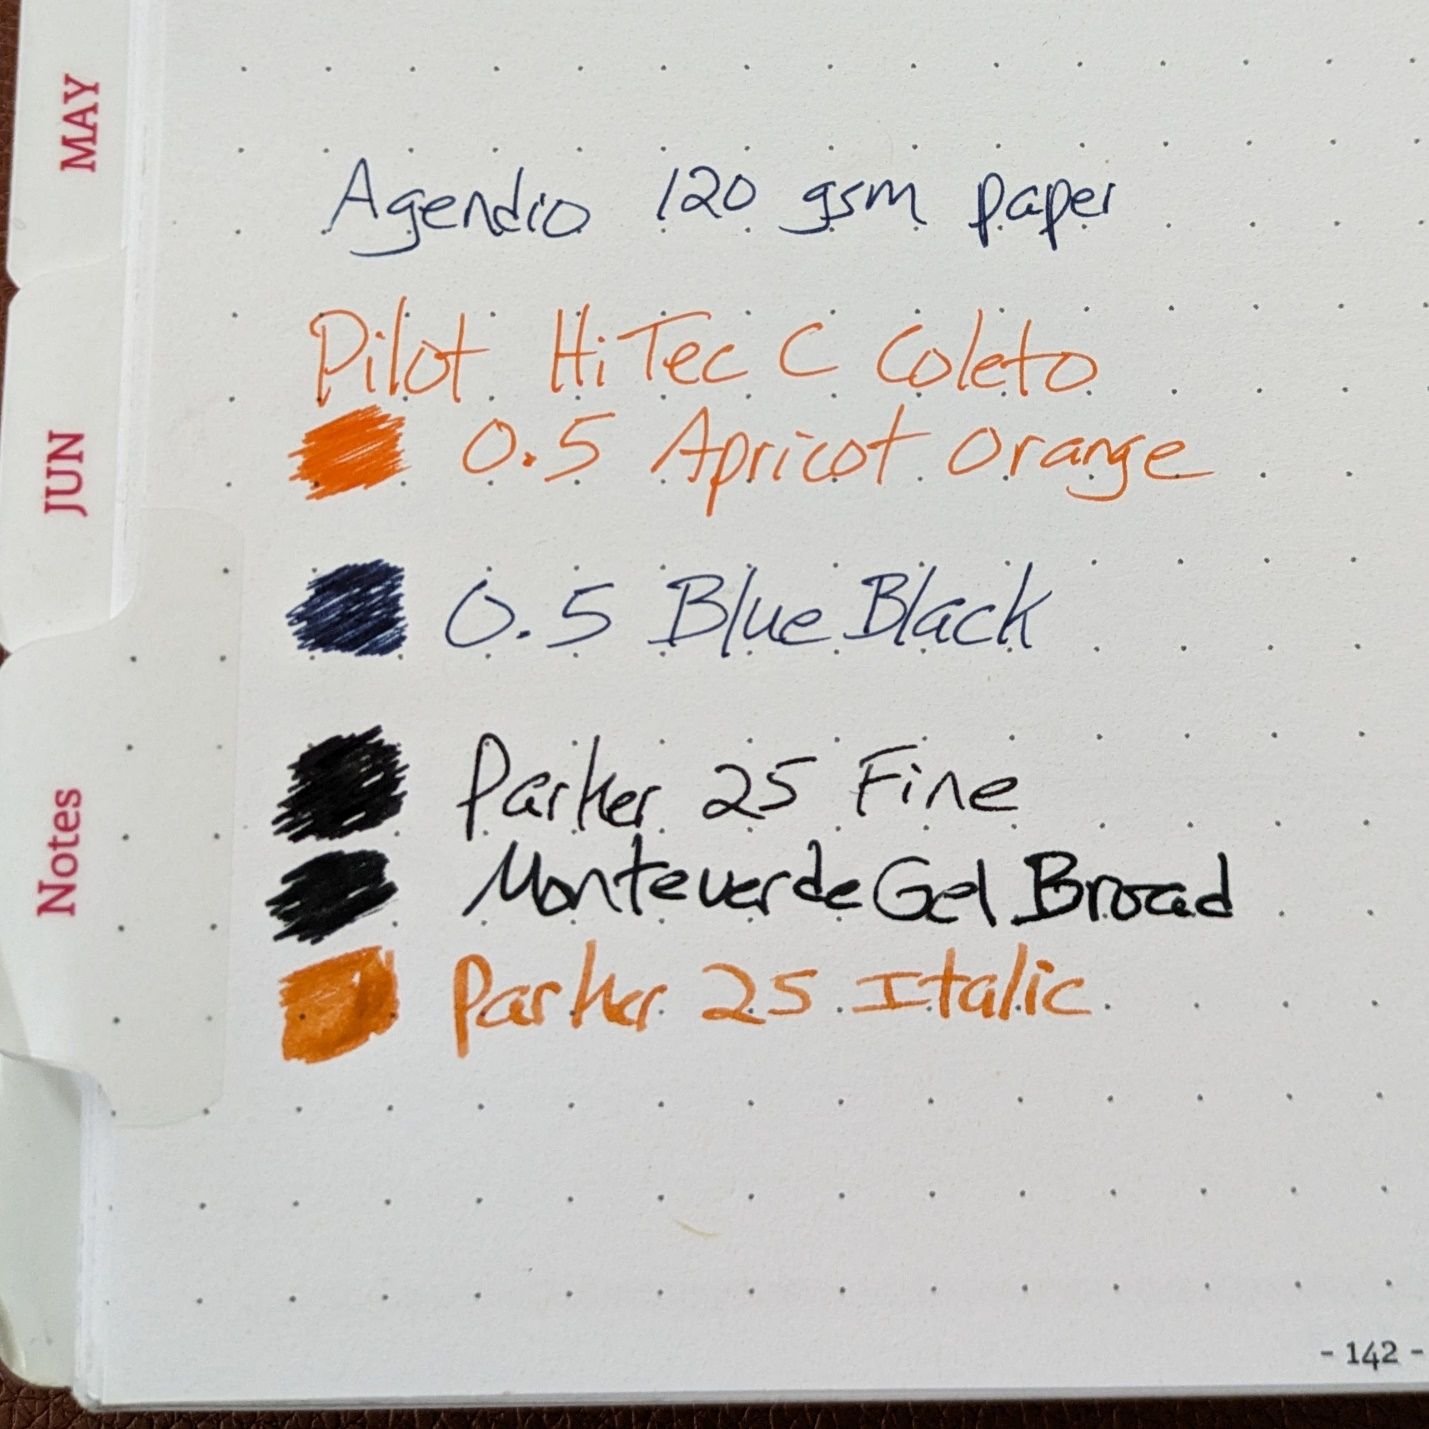 MAY
JUN
Notes
Agendio 120 gsm paper
Pilot HiTec C Coleto
0.5 Apricot Orange
0.5 Blue Black
Parker 25 Fine
Monteverde Gel Broad
Parker 25 Italic
- 142 -